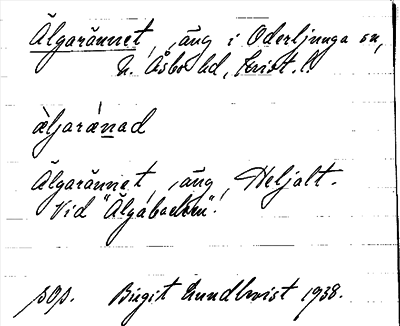 Älgarännet, äng i Oderljunga sn,
N. Åsbo hd, Krist. l.
äljaránad
Älgarännet, äng, Heljalt.
Vid "Älgabacken".
pop. Birgit Lundkvist 1938.